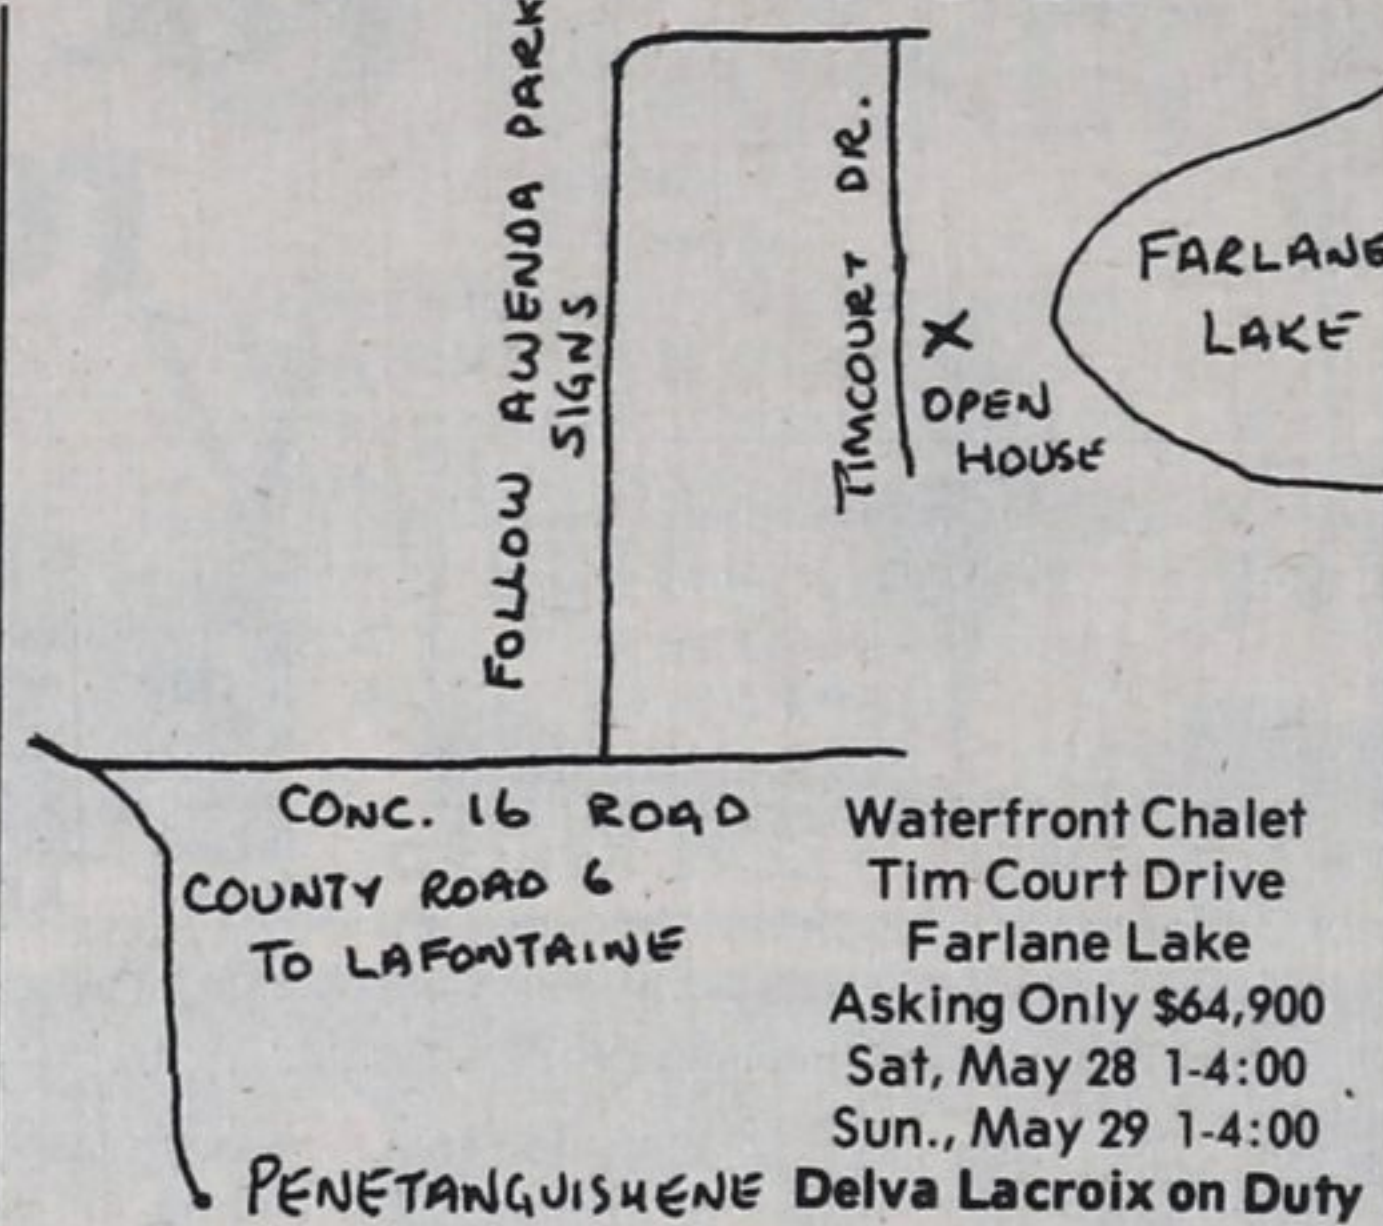 FOLLOW AWENDA PARK
SIGNS
TIMCOURT DR.
FARLANE
LAKE
X
OPEN
HOUSE
CONC. 16 ROAD
COUNTY ROAD 6
TO LAFONTAINE
PENETANGUISHENE
Waterfront Chalet
Tim Court Drive
Farlane Lake
Asking Only $64,900
Sat, May 28 1-4:00
Sun., May 29 1-4:00
Delva Lacroix on Duty